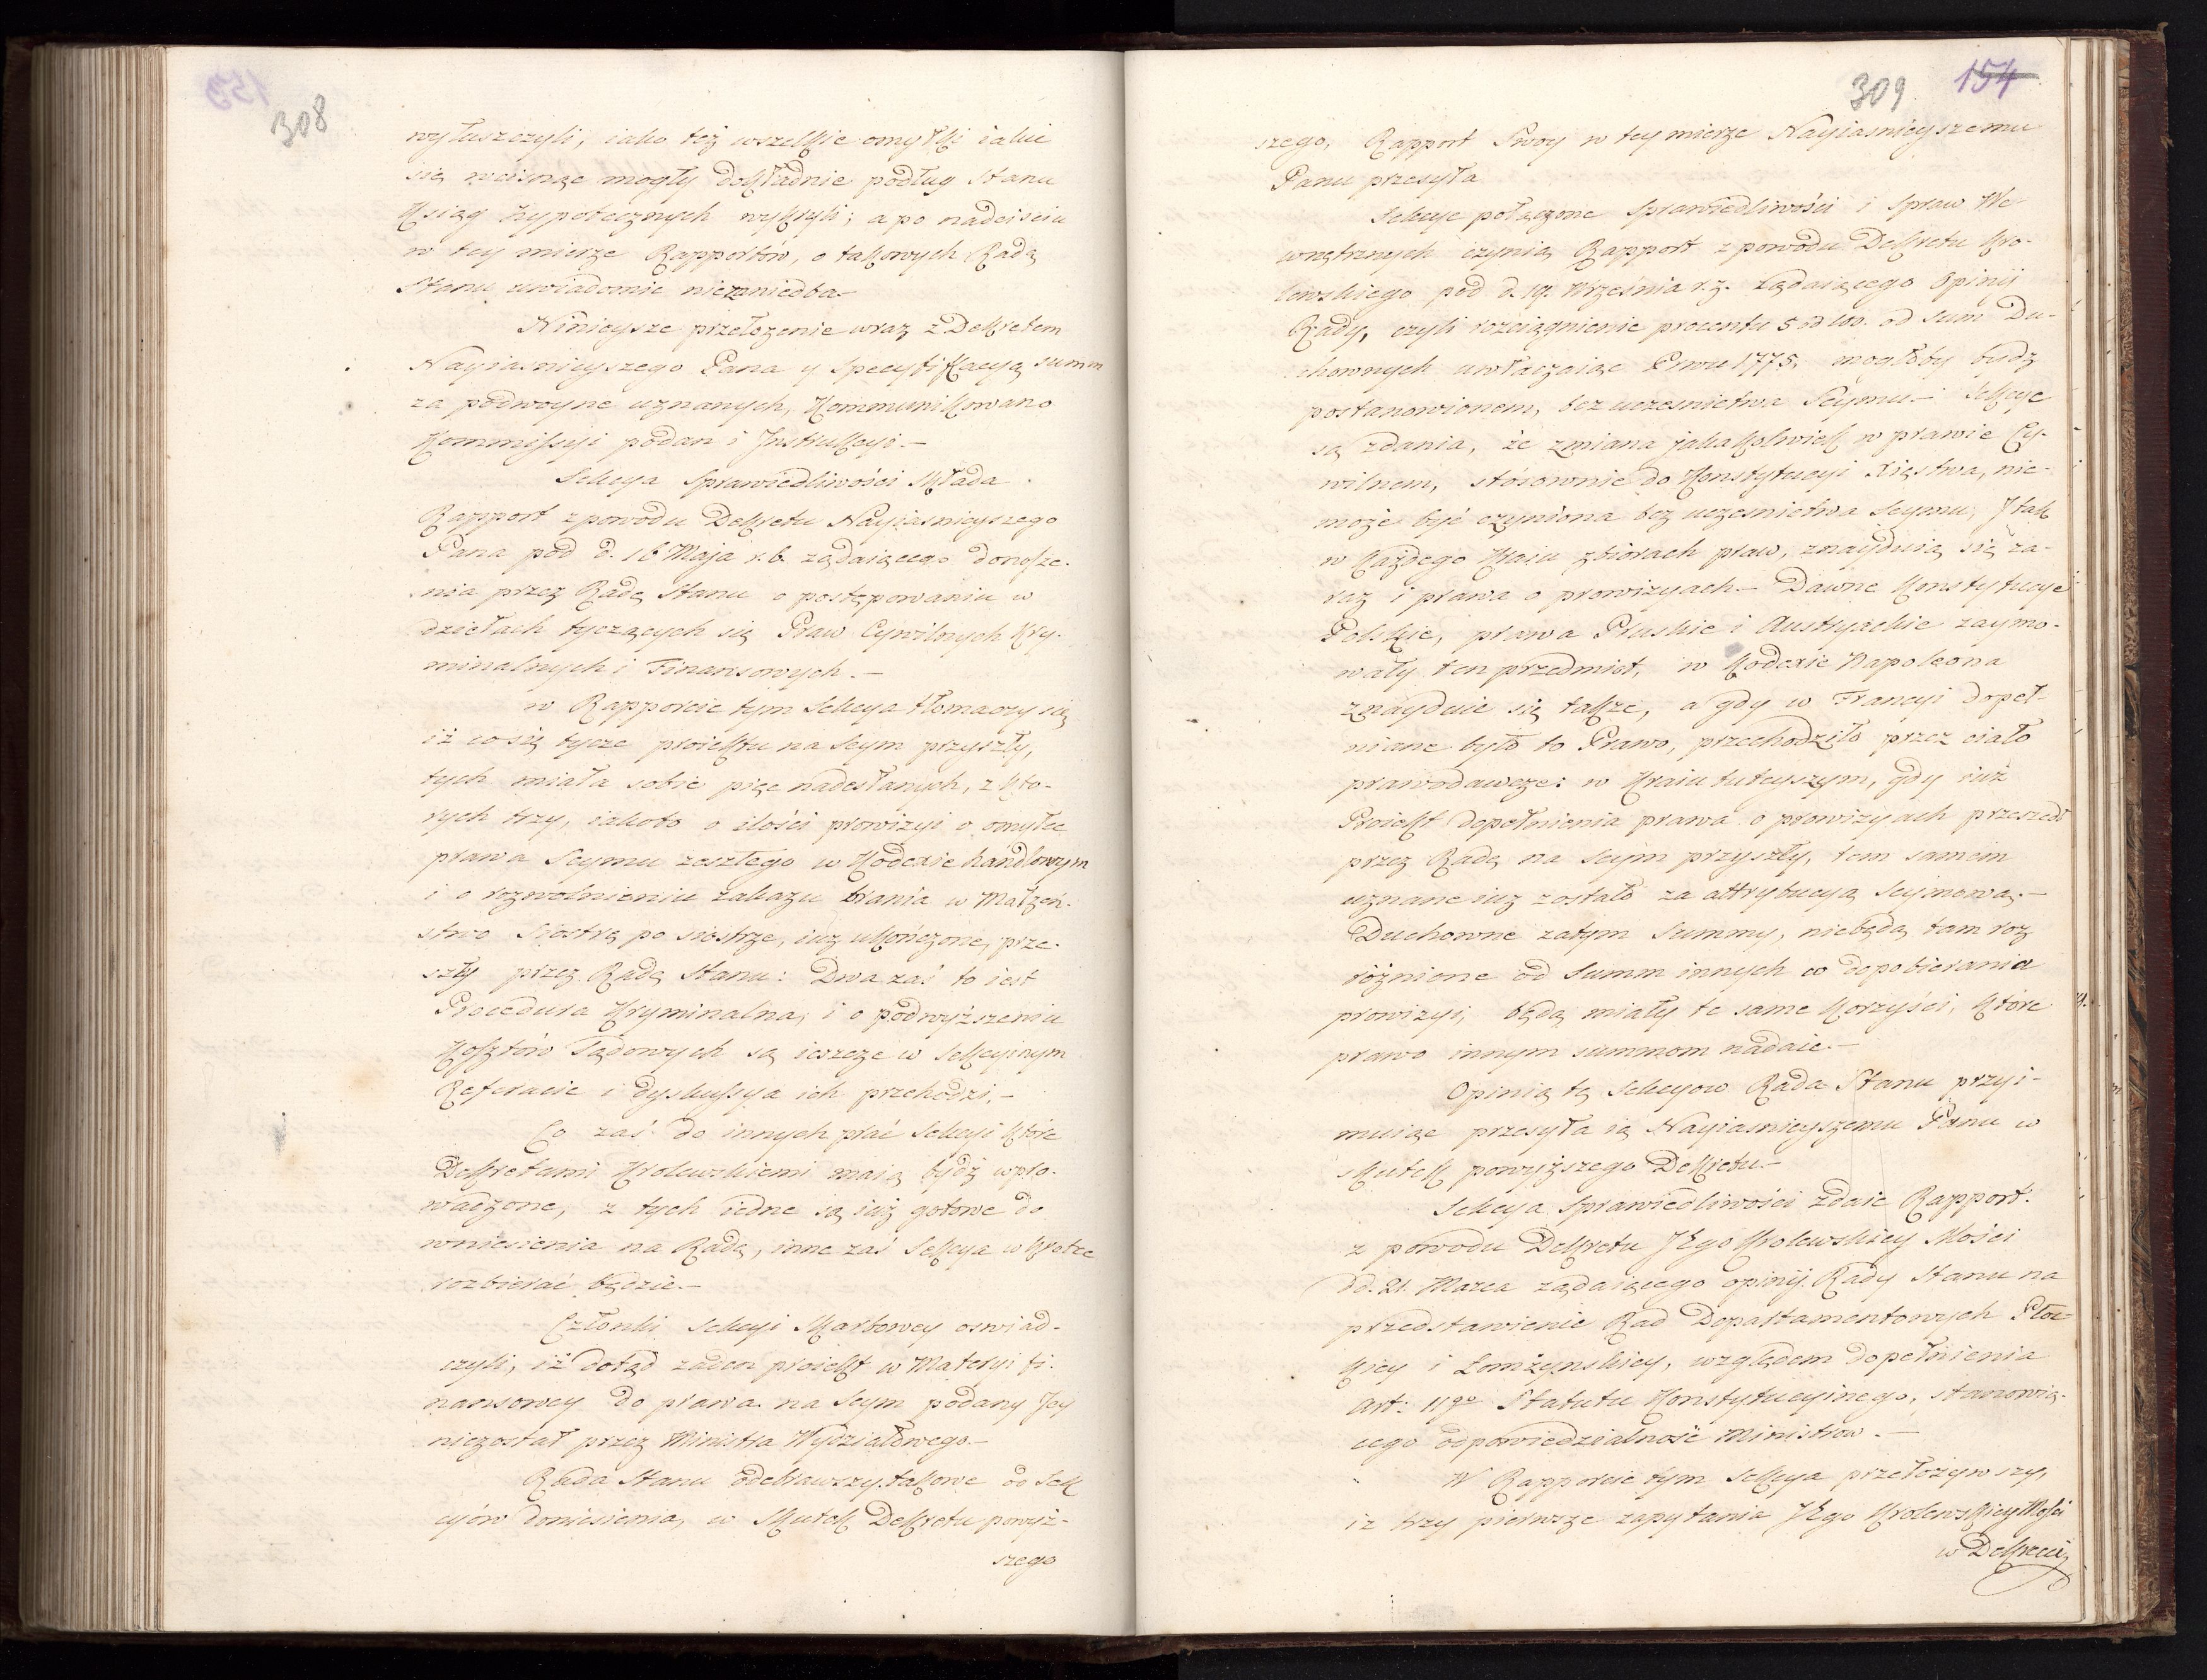 308
wyłuszczyli, iako też wszelkie omyłki iakie
się wcisnąc mogły dokładnie podług Stanu
Ksiąg hypotecznych wykryli; a po nadeisciu
w tey mierze Rapportów, o takowych Radę
Stanu uwiadomic niezaniedba.-
Ninieysze przełożenie wraz z Dekretem
Nayiasnieyszego Pana y Specyfikacyą summ
za podwoyne uznanych, kommunikowano
Kommissyi podan i Instrukcyi.-
Sekcya Sprawiedliwości składa
Rapport z powodu Dekretu Nayiasnieyszego
Pana pod d. 16 Maja r. b. żądaiącego donosze-
nia przez Radę Stanu o postępowaniu w
dziełach tyczących się Praw Cywilnych Kry-
minalnych i Finansowych.-
w Rapporcie tym Sekcya tłomaczy się
iż co się tycze proiektu na Seym przyszły,
tych miała sobie pięc nadesłanych, z kto-
rych trzy, iakoto o ilości prowizyi o omyłce
prawa Seymu zeszłego w Kodexie handlowym
i o rozwolnieniu zakazu brania w Małżeń-
stwo Siostrę po siostrze, iuz ukończone, prze-
szły przez Radę Stanu: Dwa zaś to iest
Procedura Kryminalna, i o podwyższeniu
Kosztów Sądowych są ieszcze w Sekcyinym
Referacie i dyskussya ich przechodzi.-
Co zaś do innych prać Sekcyi które
Dekretami Krolewskiemi maią bydź wpro-
wadzone, z tych iedne są iuż gotowe do
wniesienia na Radę, inne zaś Sekcya w krotce
rozbierać będzie.-
Członki Sekcyi Skarbowey oswiad-
czyli, iż dotąd żaden proiekt w Materyi fi-
nansowey do prawa na Seym podany Jey
niezostał przez Ministra Wydziałowego.-
Rada Stanu odebrawszy takowe od Sek
cyów doniesienia, w skutek Dekretu powyż-
szego
309 154
szego, Rapport Swoy w tey mierze Nayiasnieyszemu
Panu przesyła
Sekcye połączone Sprawiedliwości i Spraw We-
wnętrznych czynią Rapport z powodu Dekretu Kro-
lewskiego pod d. 19. Września r. z. żądaiącego Opinij
Rady, czyli rozciągnienie procentu 5 od 100. od Sum Du-
chownych uwłaczaiąc Prwu 1775, mogłoby bydz
postanowionem, bez uczesnictwa Seymu.- Sekcye
są zdania, że zmiana jakakolwiek w prawie Cy-
wilnem, stósownie do Konstytucyi Xięstwa, nie-
może być czyniona bez uczesnictwa Seymu, J tak
w każdego kraiu zbiorach praw, znayduią się za-
raz i prawa o prowizyach.- Dawne Konstytucye
Polskie, prawa Pruskie i Austryackie zaymo-
wały ten przedmiot, w Kodexie Napoleona
znayduie się takze, a gdy w Francyi dopeł-
niane było to Prawo, przechodziło przez ciało
prawodawcze: w Kraiu tuteyszym, gdy iuż
Proiekt dopełnienia prawa o prowizyach przeszedł
przez Radę na Seym przyszły, tem samem
uznane iuz zostało za attrybucyą Seymową.-
Duchowne zatym Summy, niebędą tam roz
różnione od Summ innych co do pobierania
prowizyi, będą miały te same korzyści, które
prawo innym summom nadaie.-
Opinią tę Sekcyow Rada Stanu przyi-
muiąc przesyła ią Nayiasnieyszemu Panu w
skutek powyższego Dekretu.-
Sekcya Sprawiedliwości zdaie Rapport
z powodu Dekretu JEgo Krolewskiey Mości
dd. 21. Marca żądaiącego opinij Rady Stanu na
przedstawienie Rad Departamentowych Płoc-
kiey i Łomżynskiey, względem dopełnienia
Art: 11go Statutu Konstytucyinego, stanowią-
cego odpowiedzialność Ministrow.-
W Rapporcie tym Sekcya przełożywszy,
iz trzy pierwsze zapytania JEgo Krolewskiey Mości
w Dekrecie